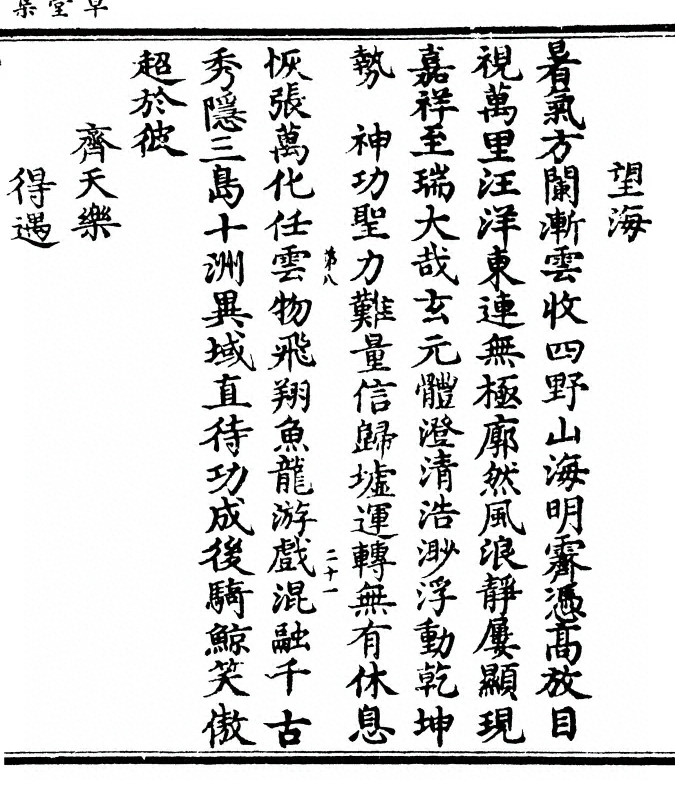 草堂集
望海
暑氣方闌漸雲收四野山海明霽憑高放目
視萬里汪洋東連無極廓然風浪靜屢顯現
嘉祥至瑞大哉玄元體澄清浩渺浮動乾坤
勢　神功聖力難量信歸墟運轉無有休息
第八　二十一
恢張萬化任雲物飛翔魚龍游戲混融千古
秀隱三島十洲異域直待功成後騎鯨笑傲
超於彼
齊天樂
得遇